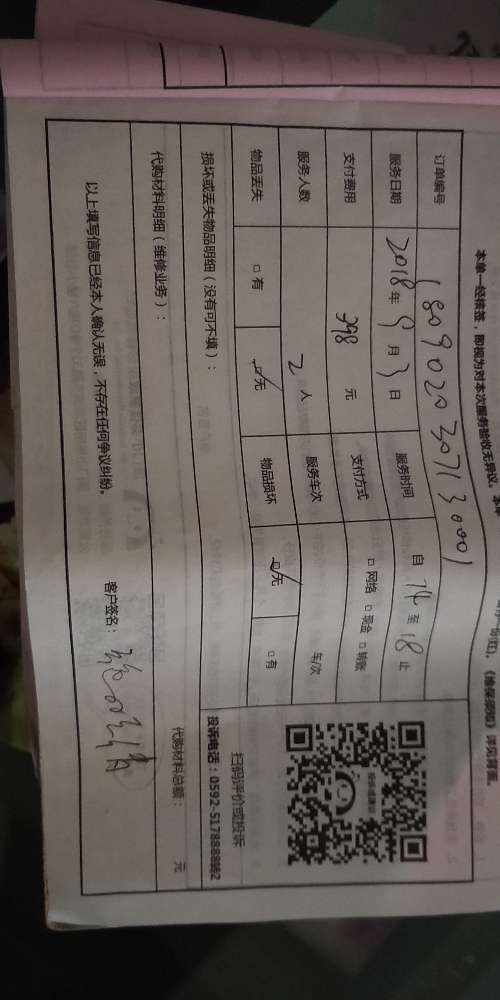 本单一经核签，即视为对本次服务验收无异议。本单
《维保须知》详见背面。
订单编号 1809020307130001
服务日期 2018年 9月 3日 服务时间 自 14 至 18 止
支付费用 398 元 支付方式 □ 网络 □ 现金 □ 转账
服务人数 2 人 服务车次 车/次
物品丢失 □ 有 □ 无 物品损坏 □ 无 □ 有
投诉或建议
扫码评价或投诉
投诉电话：0592-5178888转2
损坏或丢失物品明细（没有可不填）：
代购材料明细（维修业务）： 代购材料总额： 元
以上填写信息已经本人确认无误，不存在任何争议纠纷。 客户签名：